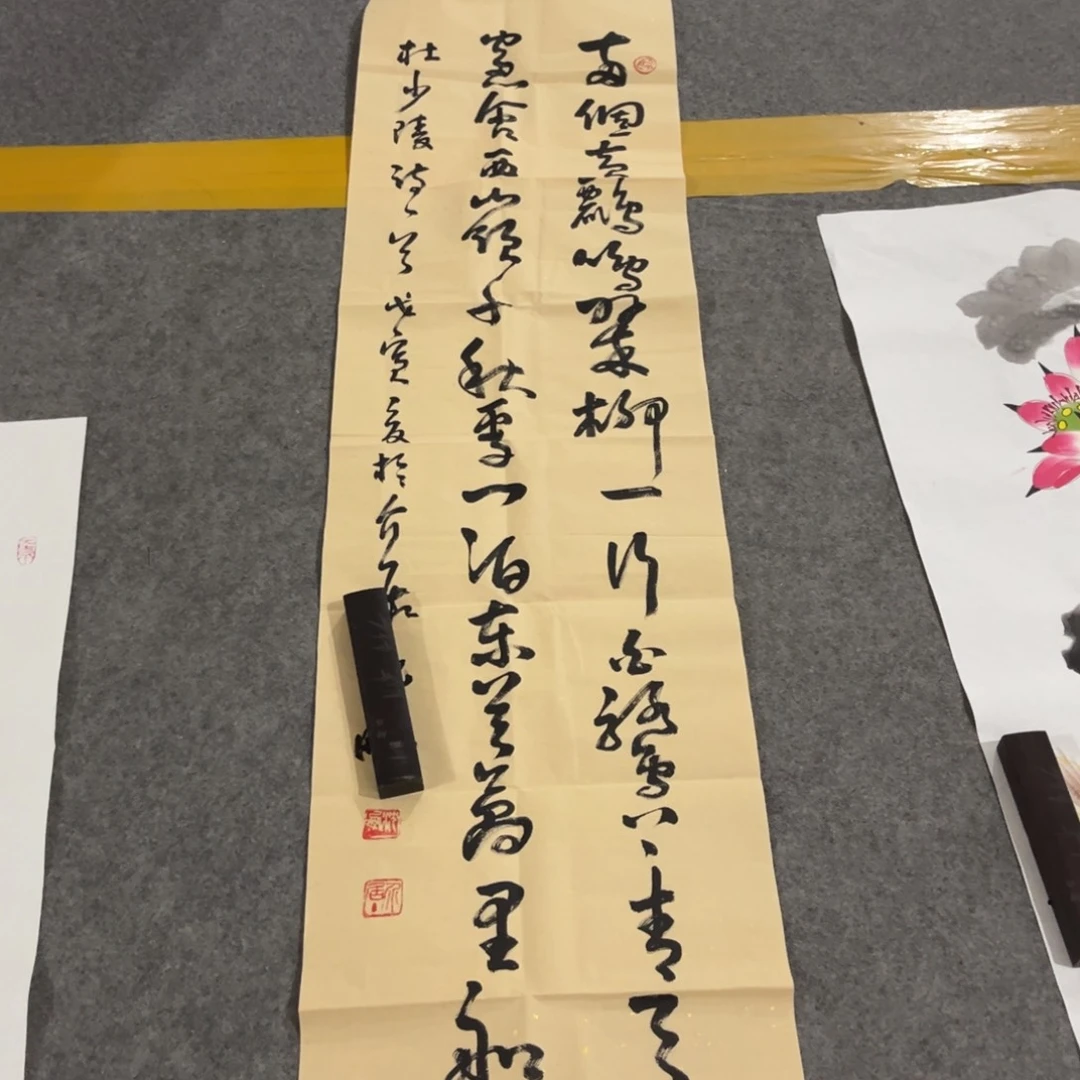 兩個黃鸝鳴翠柳一行白鷺上青天
窗含西嶺千秋雪門泊東吳萬里船
杜少陵詩一首戊寅夏於介居